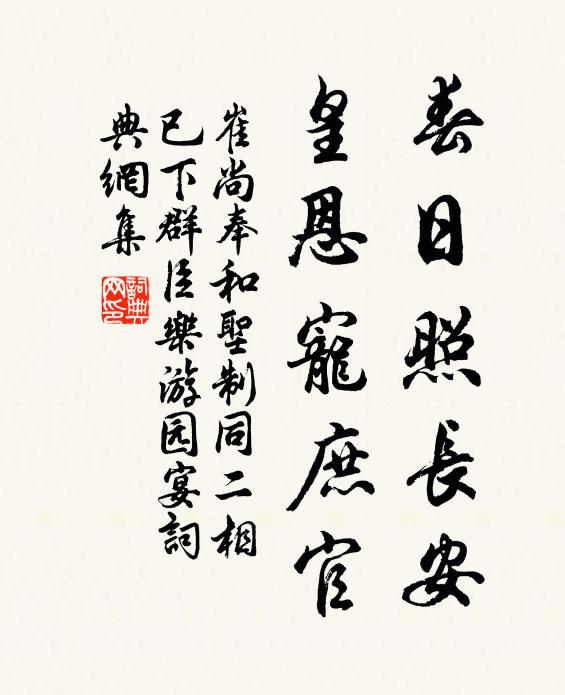 春日照長安
皇恩寵庶官
崔尚奉和聖制同二相
已下群臣樂游园宴詞
典網集
詞典网印